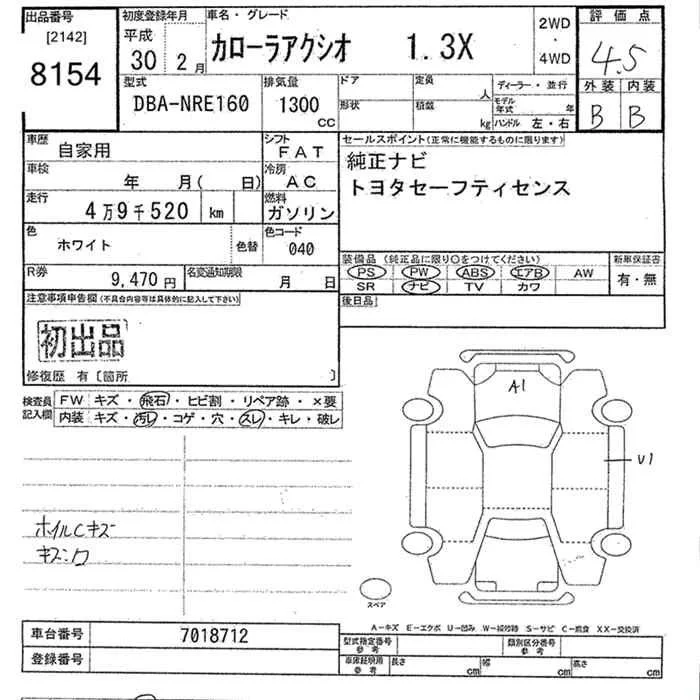 出品番号
[2142]
8154
初度登録年月
平成
30 2月
車名・グレード
カローラアクシオ 1.3X
2WD
・
4WD
評価点
4.5
外装 内装
B B
型式
DBA-NRE160
排気量
1300
cc
ドア
形状
定員
人
積載
kg
ディーラー・並行
モデル年式 年
ハンドル 左・右
車歴
自家用
シフト
FAT
車検
年 月( 日)
冷房
AC
走行
4万9千520 km
燃料
ガソリン
色
ホワイト
色替
色コード
040
R券
9,470円
名変通知期限
月 日
セールスポイント(正常に機能するものに限ります)
純正ナビ
トヨタセーフティセンス
装備品(純正品に限り○をつけてください)
PS PW ABS エアB AW
SR ナビ TV カワ
新車保証書
有・無
後日品
注意事項申告欄(不具合内容等は具体的に記入して下さい)
初出品
修復歴 有〔箇所 〕
検査員記入欄
FW キズ・飛石・ヒビ割・リペア跡・×要
内装 キズ・汚レ・コゲ・穴・スレ・キレ・破レ
ホイルCキズ
A1
U1
スペア
A-キズ E-エクボ U-凹み W-補修跡 S-サビ C-腐食 XX-交換済
車台番号 7018712
登録番号
型式指定番号
参考
類別区分番号
参考
車庫証明用
参考
長さ cm 幅 cm 高さ cm